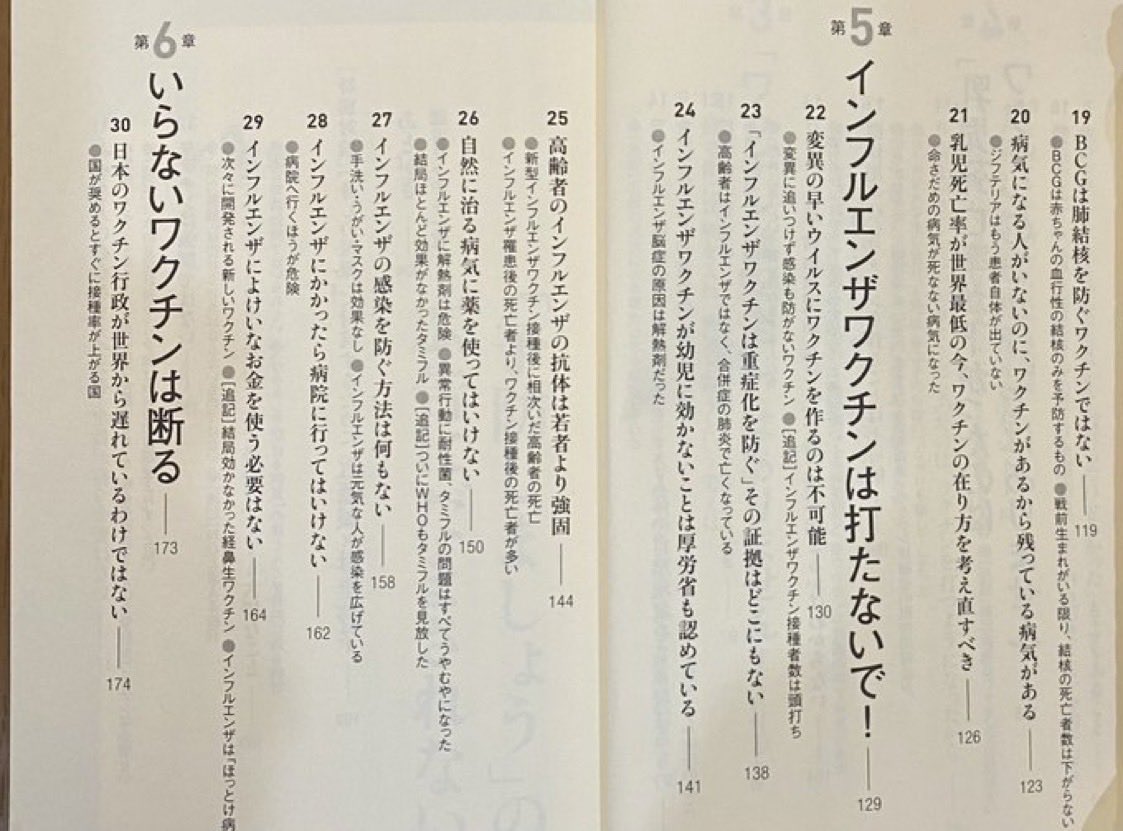 19 BCGは肺結核を防ぐワクチンではない──119
●BCGは赤ちゃんの血行性の結核のみを予防するもの ●戦前生まれがいる限り、結核の死亡者数は下がらない
20 病気になる人がいないのに、ワクチンがあるから残っている病気がある──123
●ジフテリアはもう患者自体が出ていない
21 乳児死亡率が世界最低の今、ワクチンの在り方を考え直すべき──126
●命さだめの病気が死なない病気になった
第5章 インフルエンザワクチンは打たないで!──129
22 変異の早いウイルスにワクチンを作るのは不可能──130
●変異に追いつけず感染も防がないワクチン ●[追記]インフルエンザワクチン接種者数は頭打ち
23 「インフルエンザワクチンは重症化を防ぐ」その証拠はどこにもない──138
●高齢者はインフルエンザではなく、合併症の肺炎で亡くなっている
24 インフルエンザワクチンが幼児に効かないことは厚労省も認めている──141
●インフルエンザ脳症の原因は解熱剤だった
25 高齢者のインフルエンザの抗体は若者より強固──144
●新型インフルエンザワクチン接種後に相次いだ高齢者の死亡
●インフルエンザ罹患後の死亡者より、ワクチン接種後の死亡者が多い
26 自然に治る病気に薬を使ってはいけない──150
●インフルエンザに解熱剤は危険 ●異常行動に耐性菌、タミフルの問題はすべてうやむやになった
●結局ほとんど効果がなかったタミフル ●[追記]ついにWHOもタミフルを見放した
27 インフルエンザの感染を防ぐ方法は何もない──158
●手洗い・うがい・マスクは効果なし ●インフルエンザは元気な人が感染を広げている
28 インフルエンザにかかったら病院に行ってはいけない──162
●病院へ行くほうが危険
29 インフルエンザによけいなお金を使う必要はない──164
●次々に開発される新しいワクチン ●[追記]結局効かなかった経鼻生ワクチン ●インフルエンザは「ほっとけ病
第6章 いらないワクチンは断る──173
30 日本のワクチン行政が世界から遅れているわけではない──174
●国が奨めるとすぐに接種率が上がる国